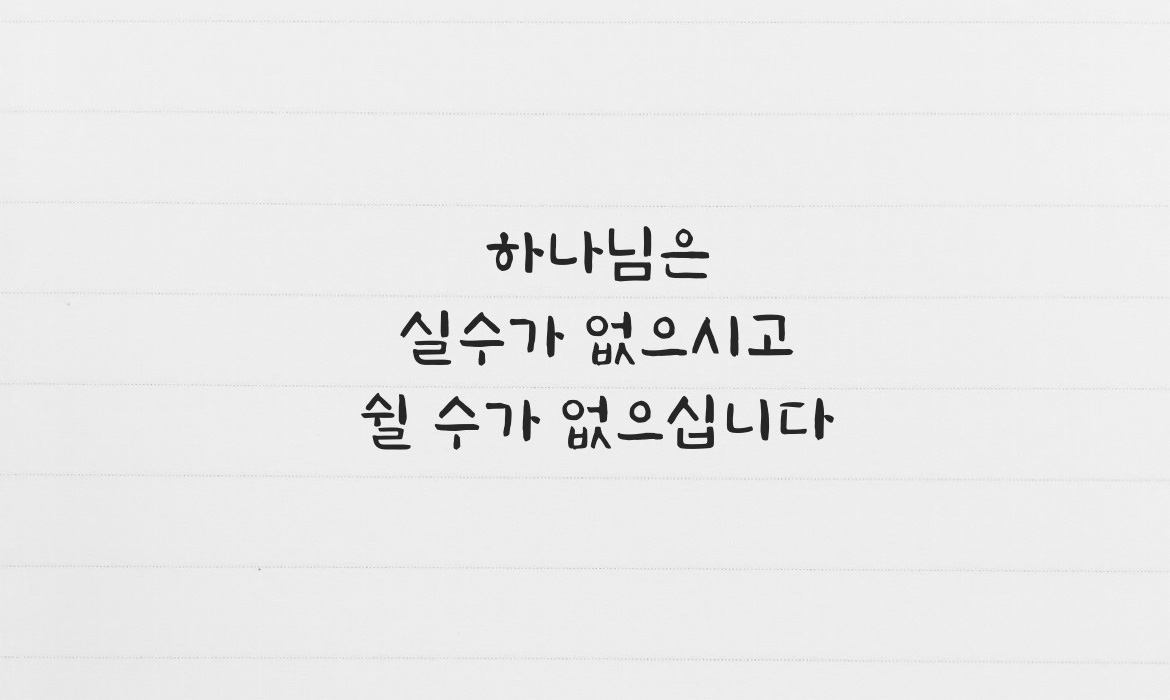 하나님은
실수가 없으시고
쉴 수가 없으십니다